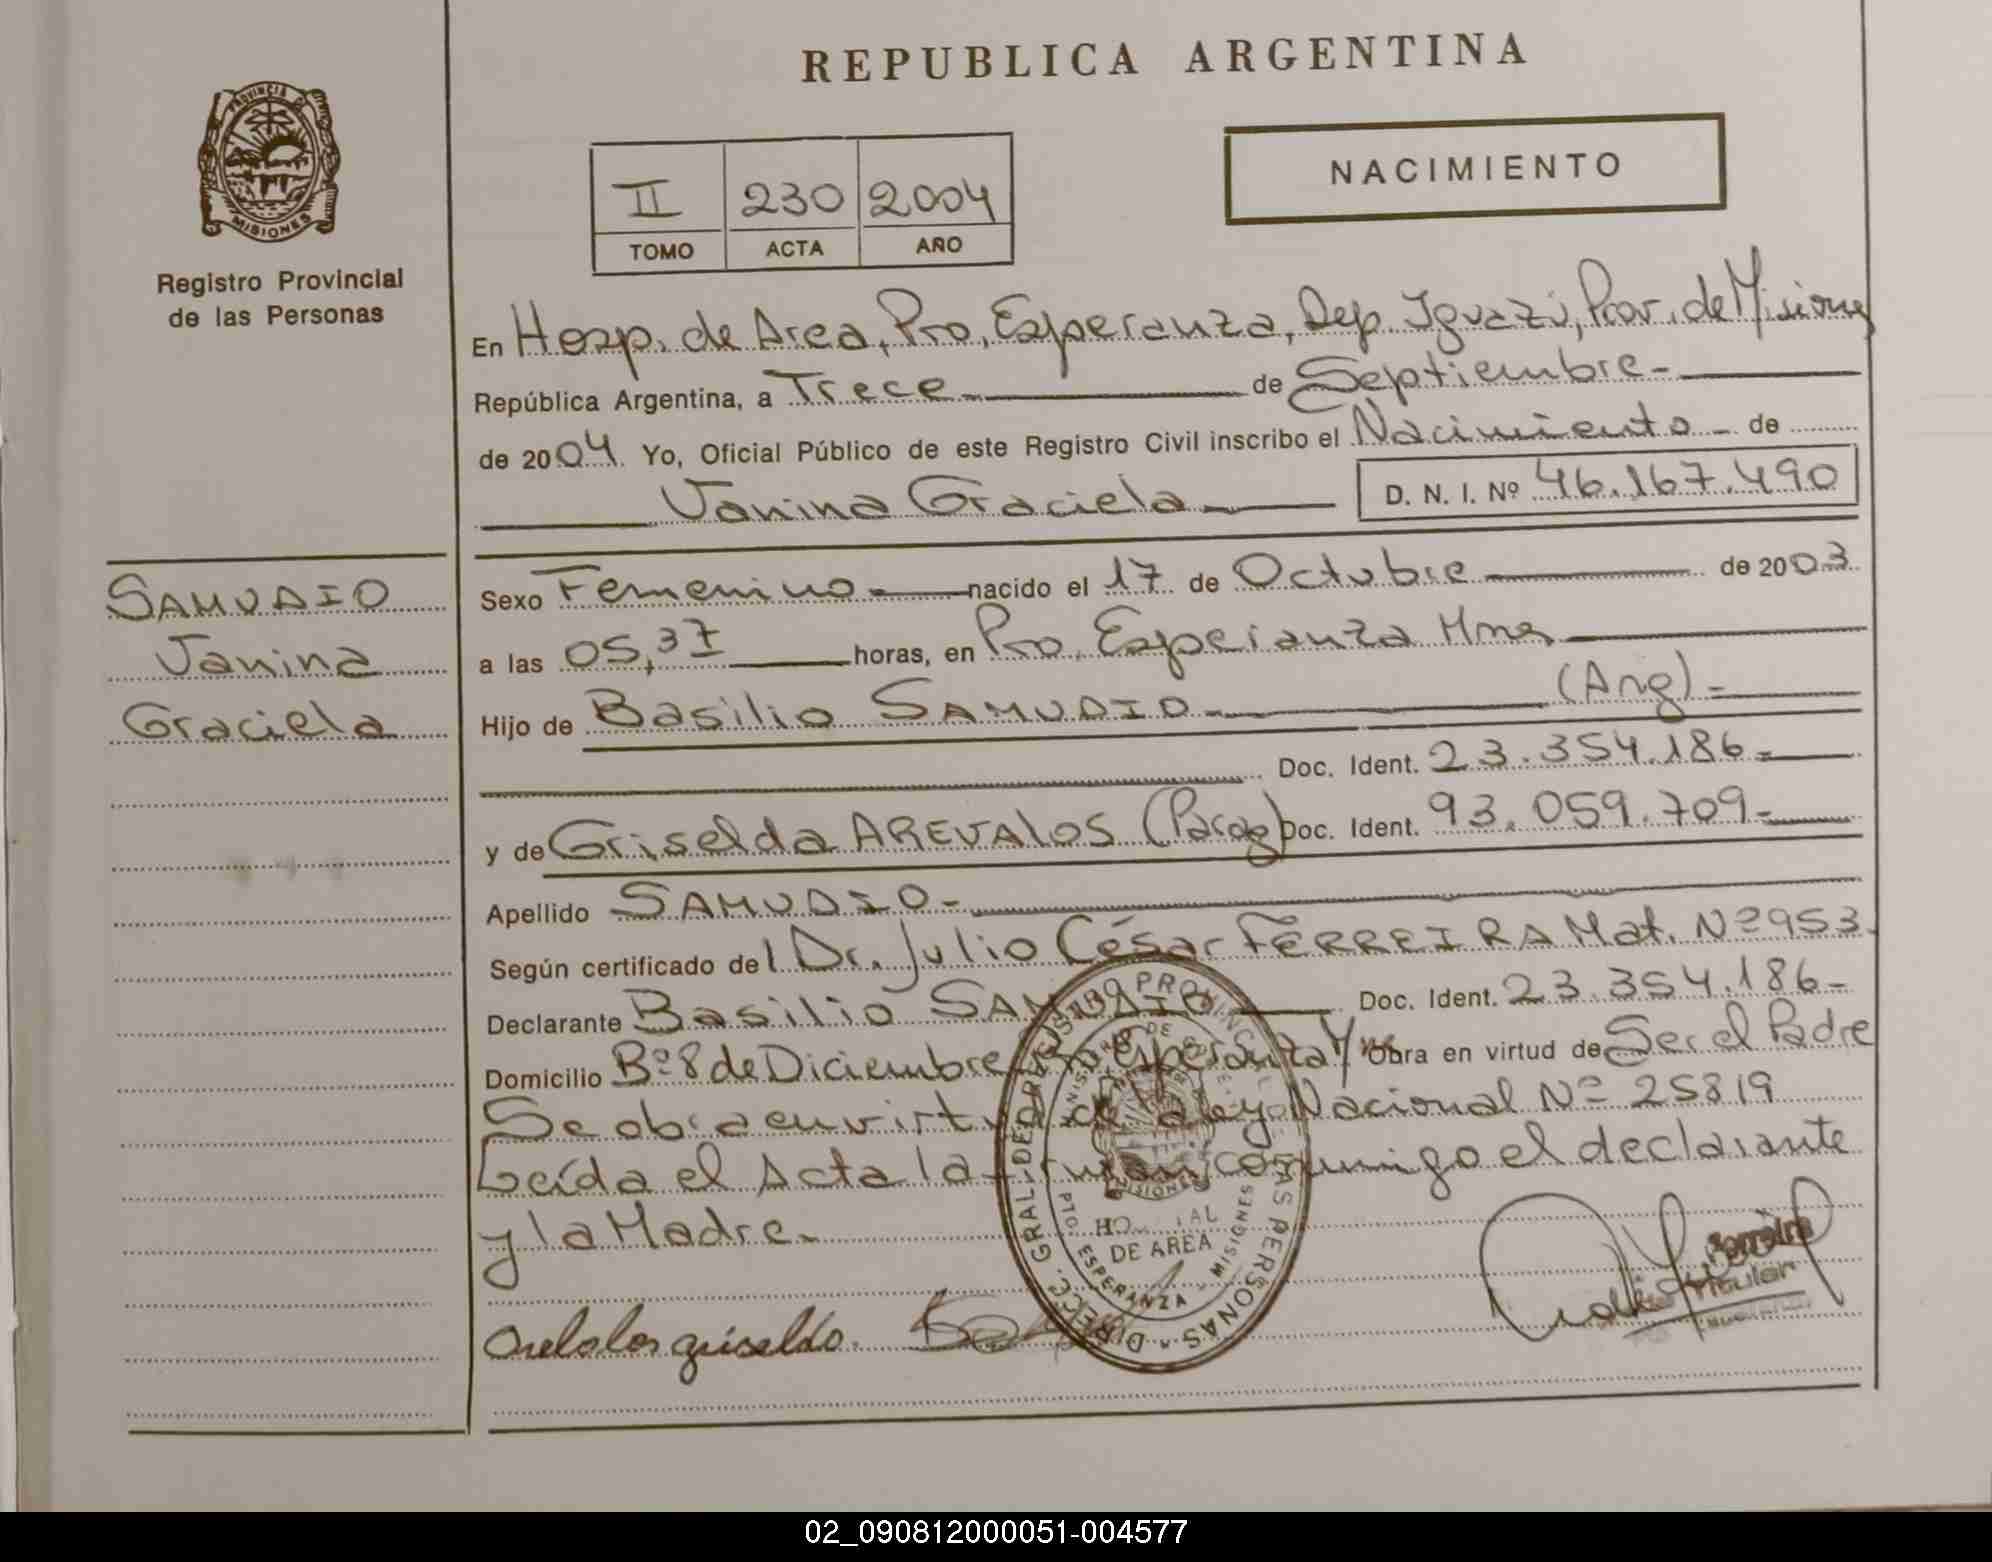 REPUBLICA ARGENTINA
PROVINCIA DE
MISIONES
Registro Provincial
de las Personas
II 230 2004
TOMO ACTA AÑO
NACIMIENTO
En Hosp. de Area, Pto, Esperanza, Dep. Iguazú, Prov. de Misiones
República Argentina, a Trece de Septiembre
de 2004 Yo, Oficial Público de este Registro Civil inscribo el Nacimiento de
Janina Graciela D. N. I. Nº 46.167.490
SAMUDIO
Janina
Graciela
Sexo Femenino nacido el 17 de Octubre de 2003
a las 05,37 horas, en Pto, Esperanza Mnes
Hijo de Basilio SAMUDIO (Arg)
Doc. Ident. 23.354.186
y de Griselda AREVALOS (Parag) Doc. Ident. 93.059.709
Apellido SAMUDIO
Según certificado del Dr. Julio César FERREIRA Mat. Nº 953
Declarante Basilio SAMUDIO Doc. Ident. 23.354.186
Domicilio Bº 8 de Diciembre Pto Esperanza Mnes Obra en virtud de Ser el Padre
Se obra en virtud de la Ley Nacional Nº 25819
Leída el Acta la firman conmigo el declarante
y la Madre.
DIRECC. GRAL. DE REGISTRO PROVINCIAL DE LAS PERSONAS
MISIONES
DE AREA
PTO. ESPERANZA - MISIONES
Arebalos griselda.
02_090812000051-004577